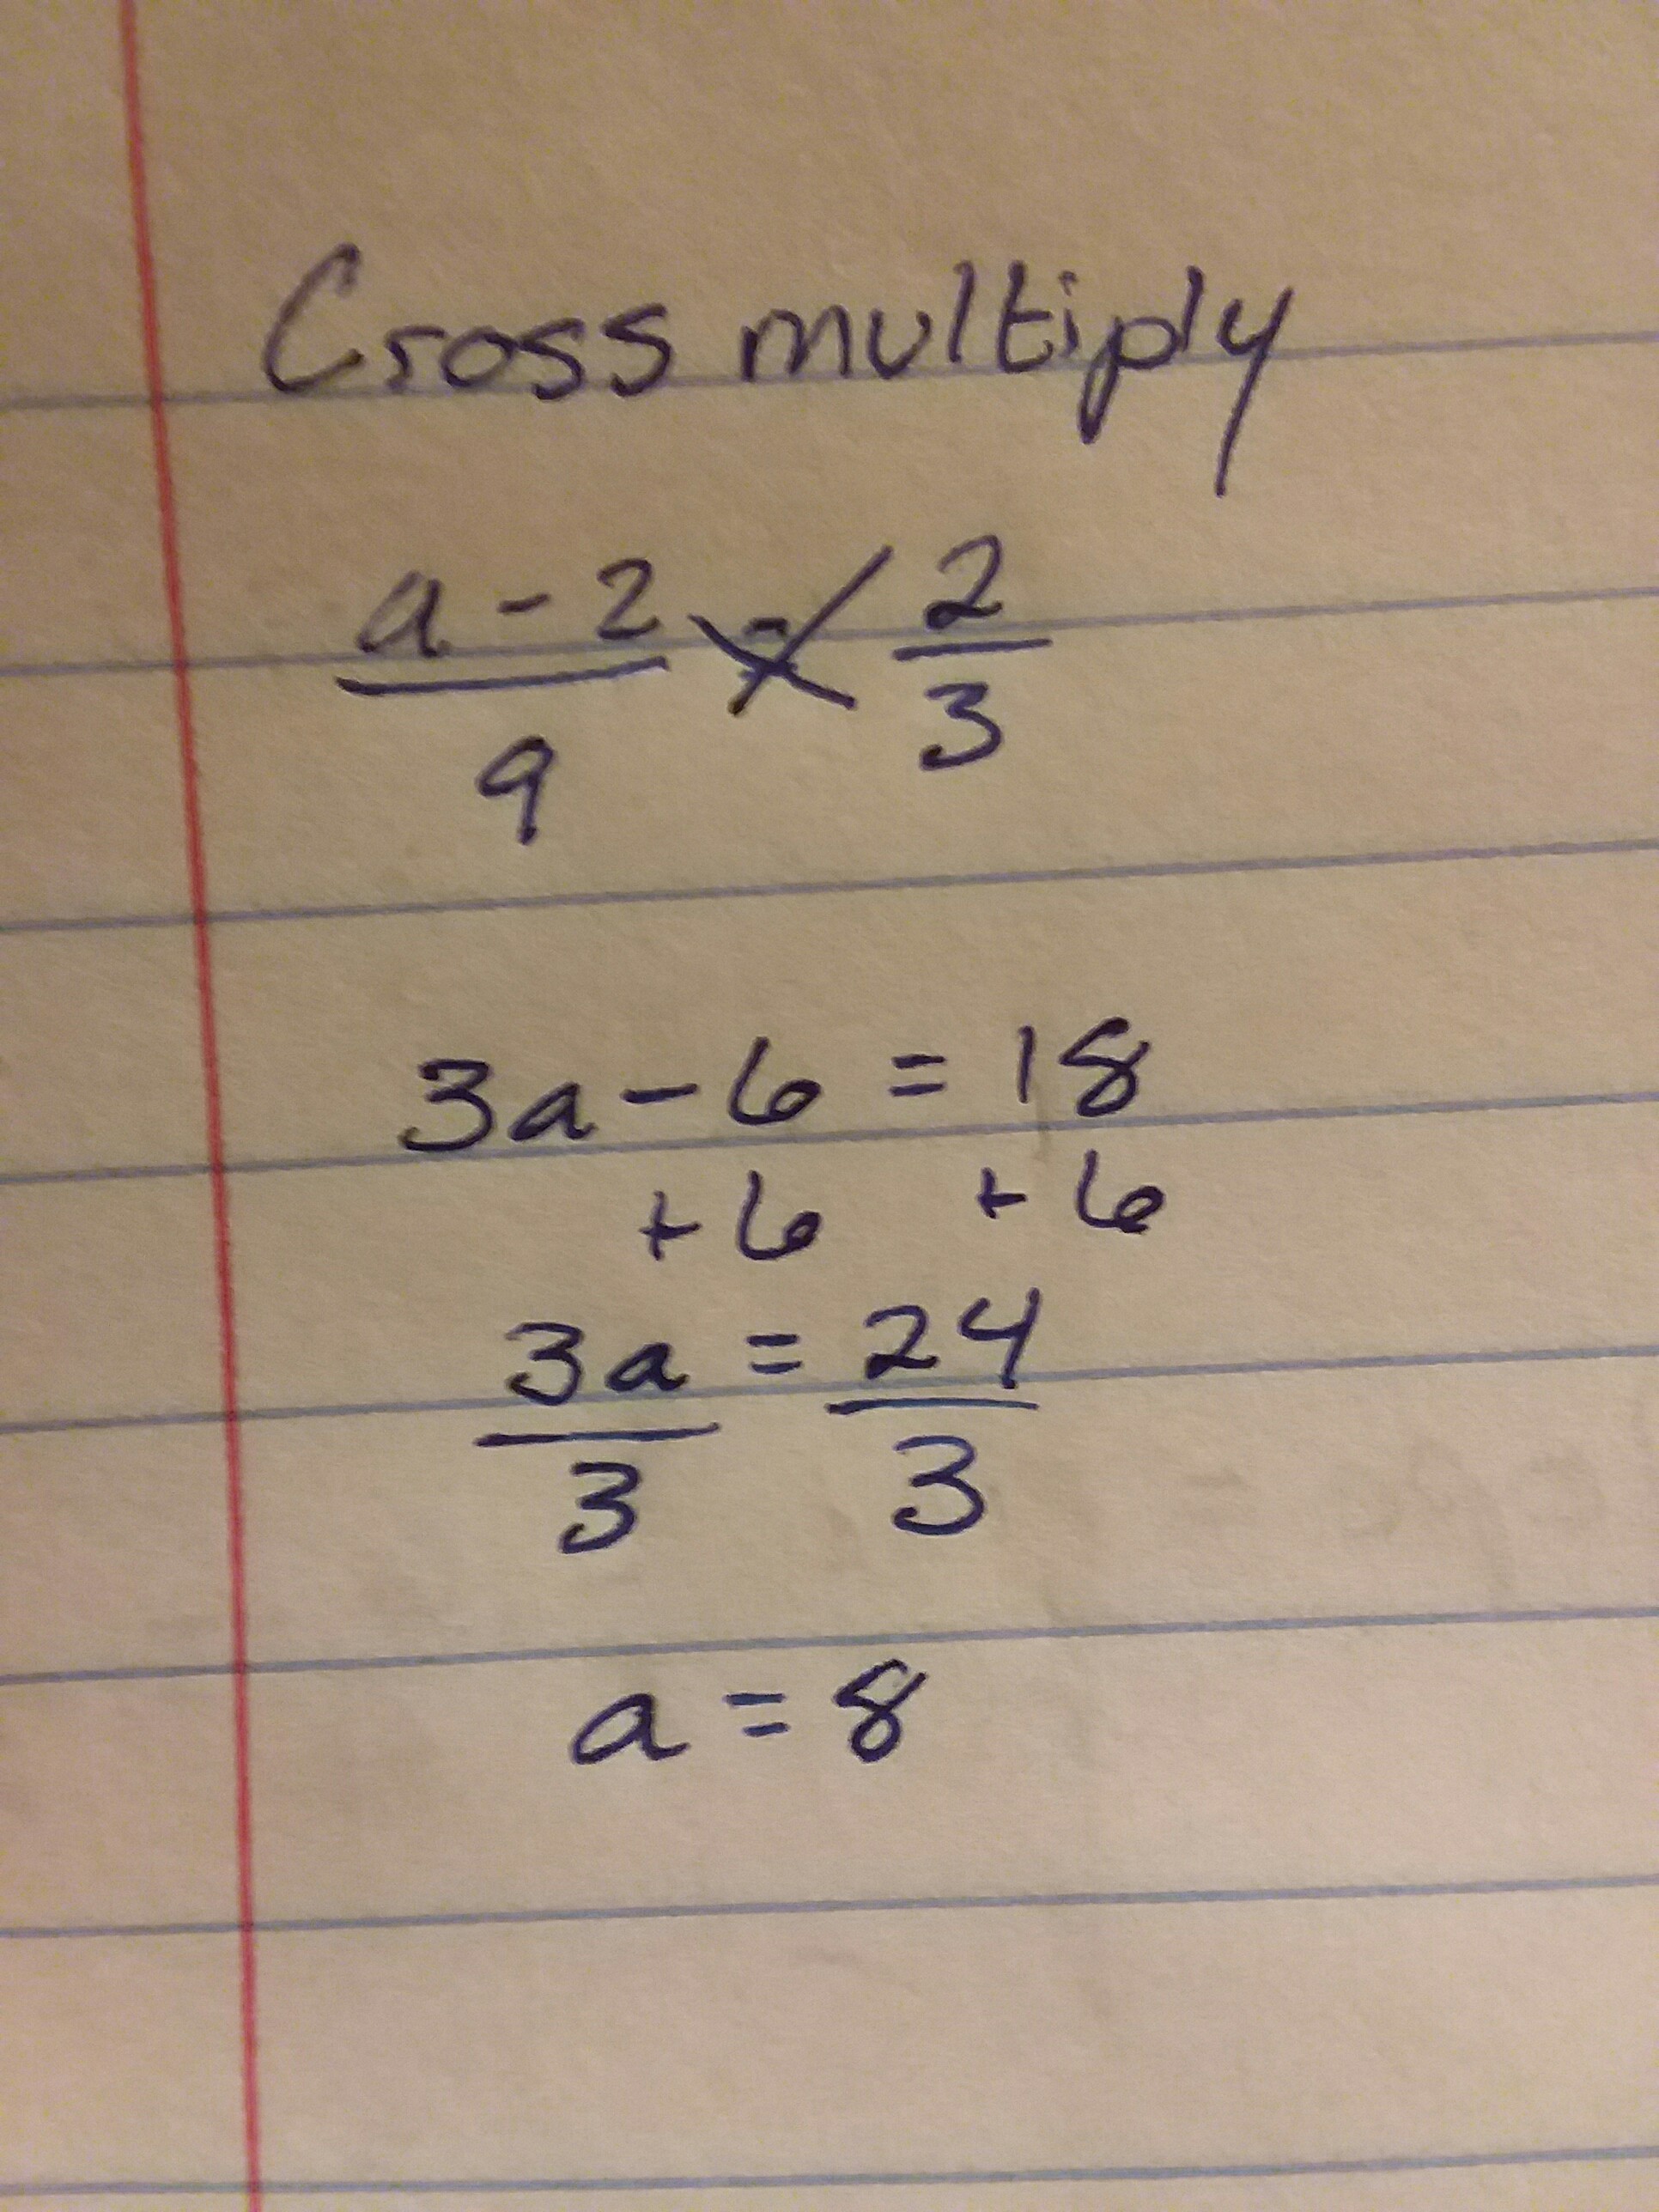 Cross multiply
a - 2 = 2
9 3
3a - 6 = 18
+ 6 + 6
3a = 24
3 3
a = 8